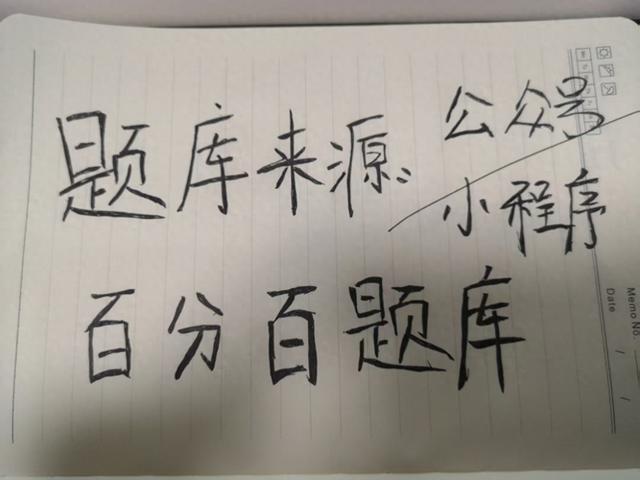 题库来源: 公众号/小程序
百分百题库
Memo No.
Date / /